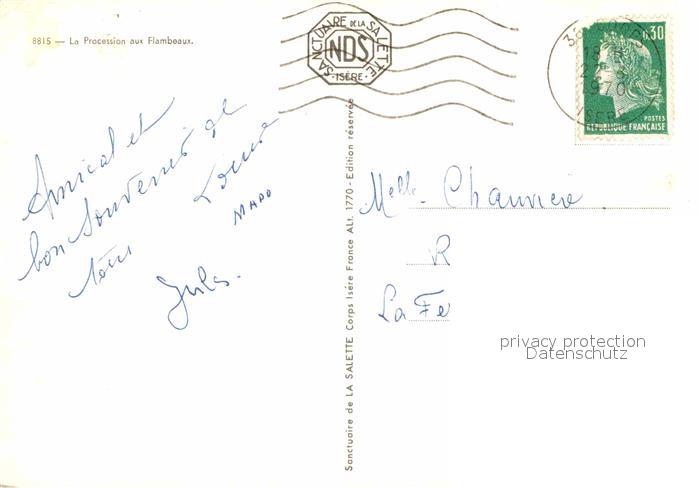 8815 — La Procession aux Flambeaux.
SANCTUAIRE DE LA SALETTE
NDS
- ISÈRE -
0,30
1970
ISERE
POSTES
REPUBLIQUE FRANÇAISE
Amical et
bon Souvenir de
tous Louise
MADO
Jules.
Sanctuaire de LA SALETTE Corps Isére France Alt. 1770 - Edition réservée
Melle Chauvière
R
La Fe
privacy protection
Datenschutz